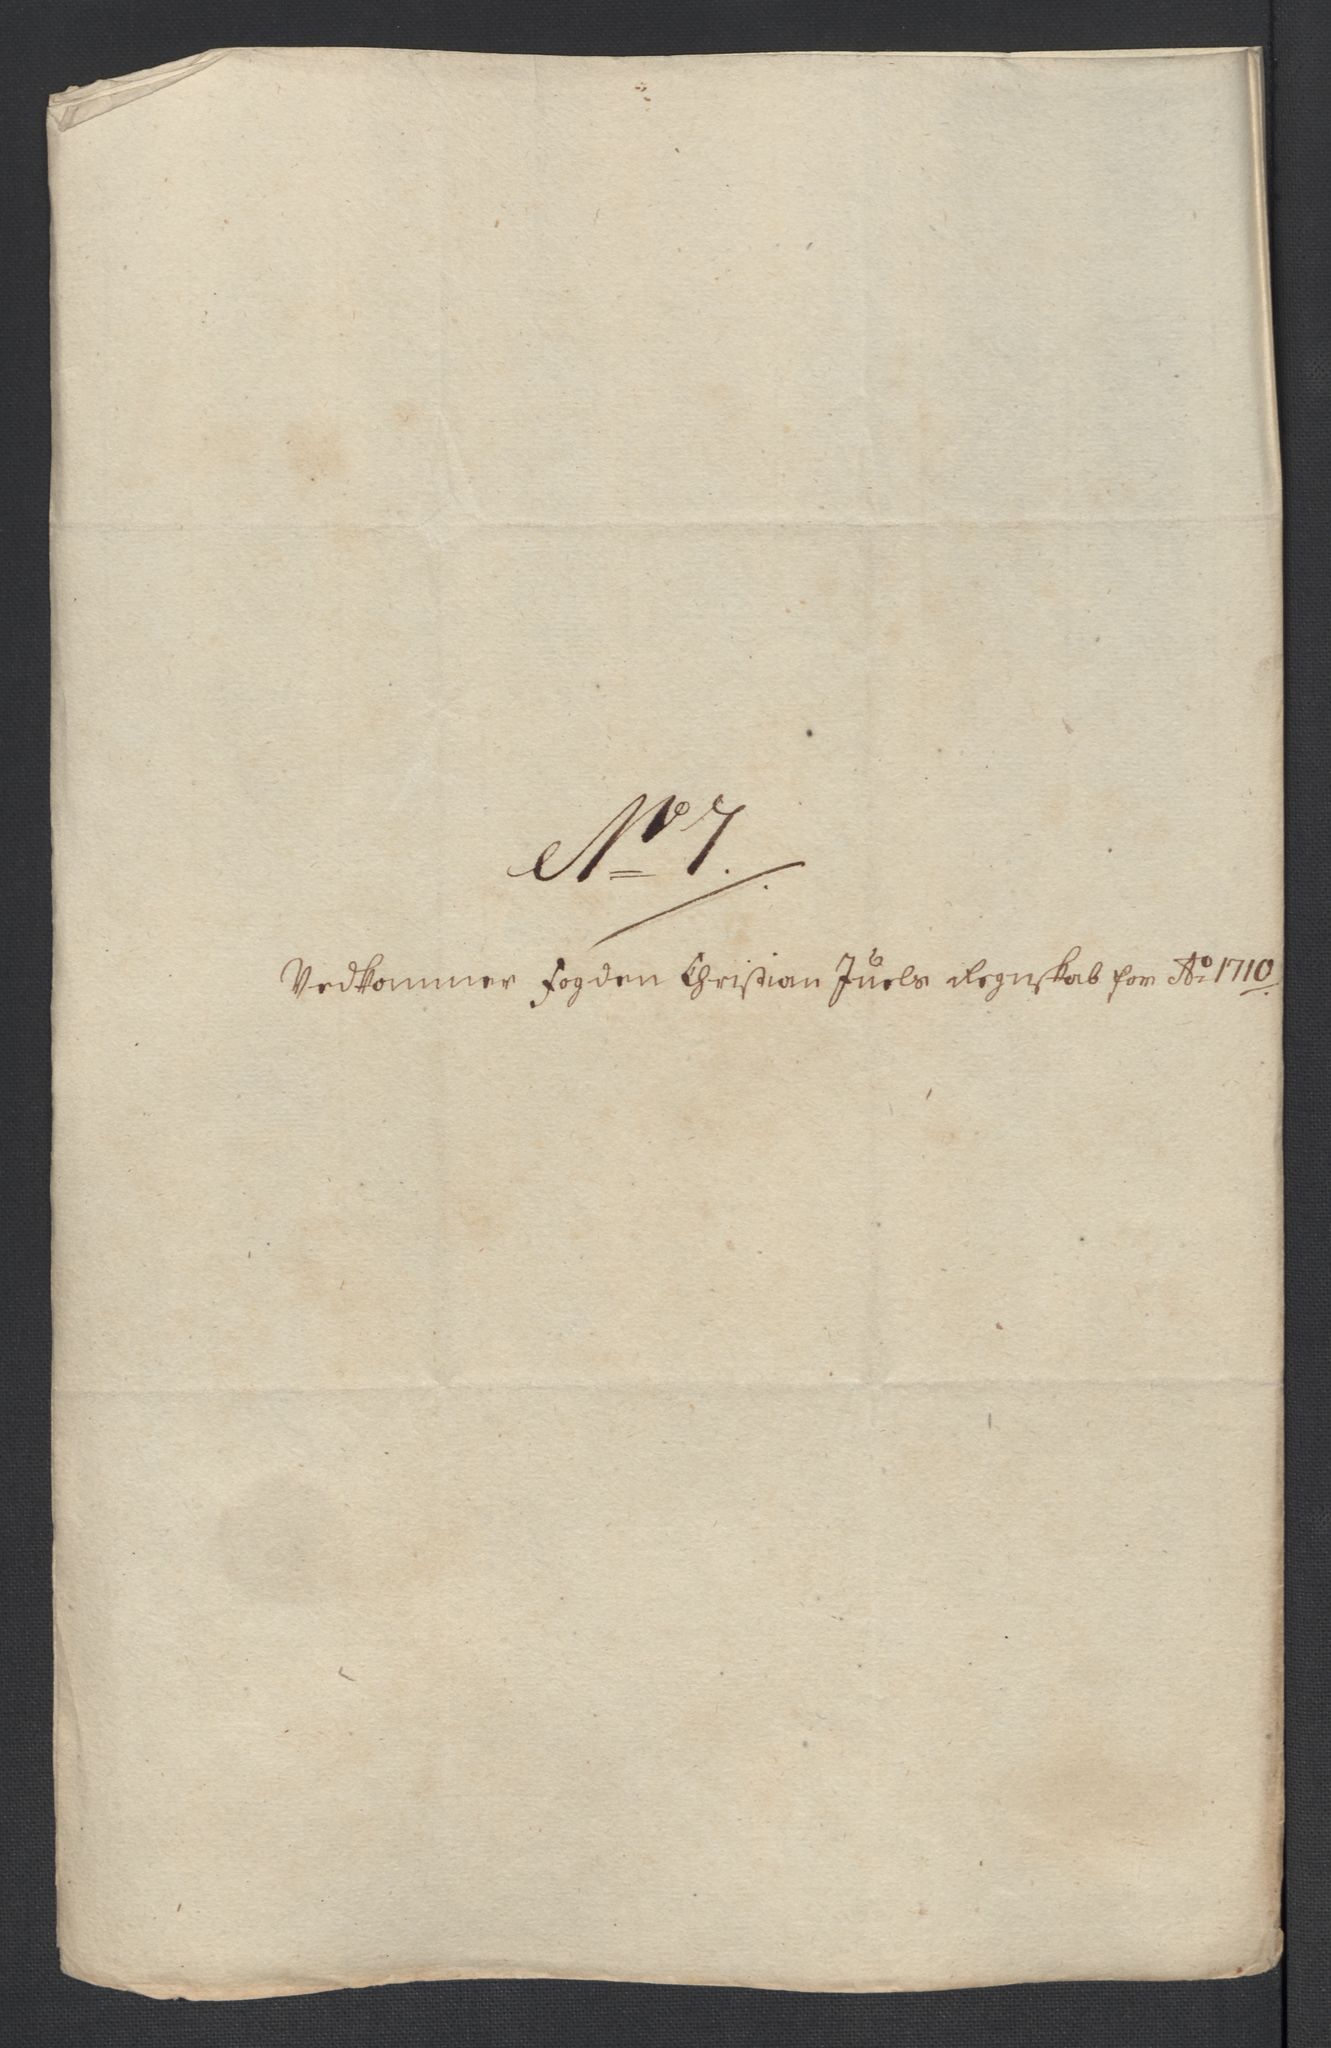 No 7.
Vedkommer Fogden Christian Juels Regnskab for Ao 1710.